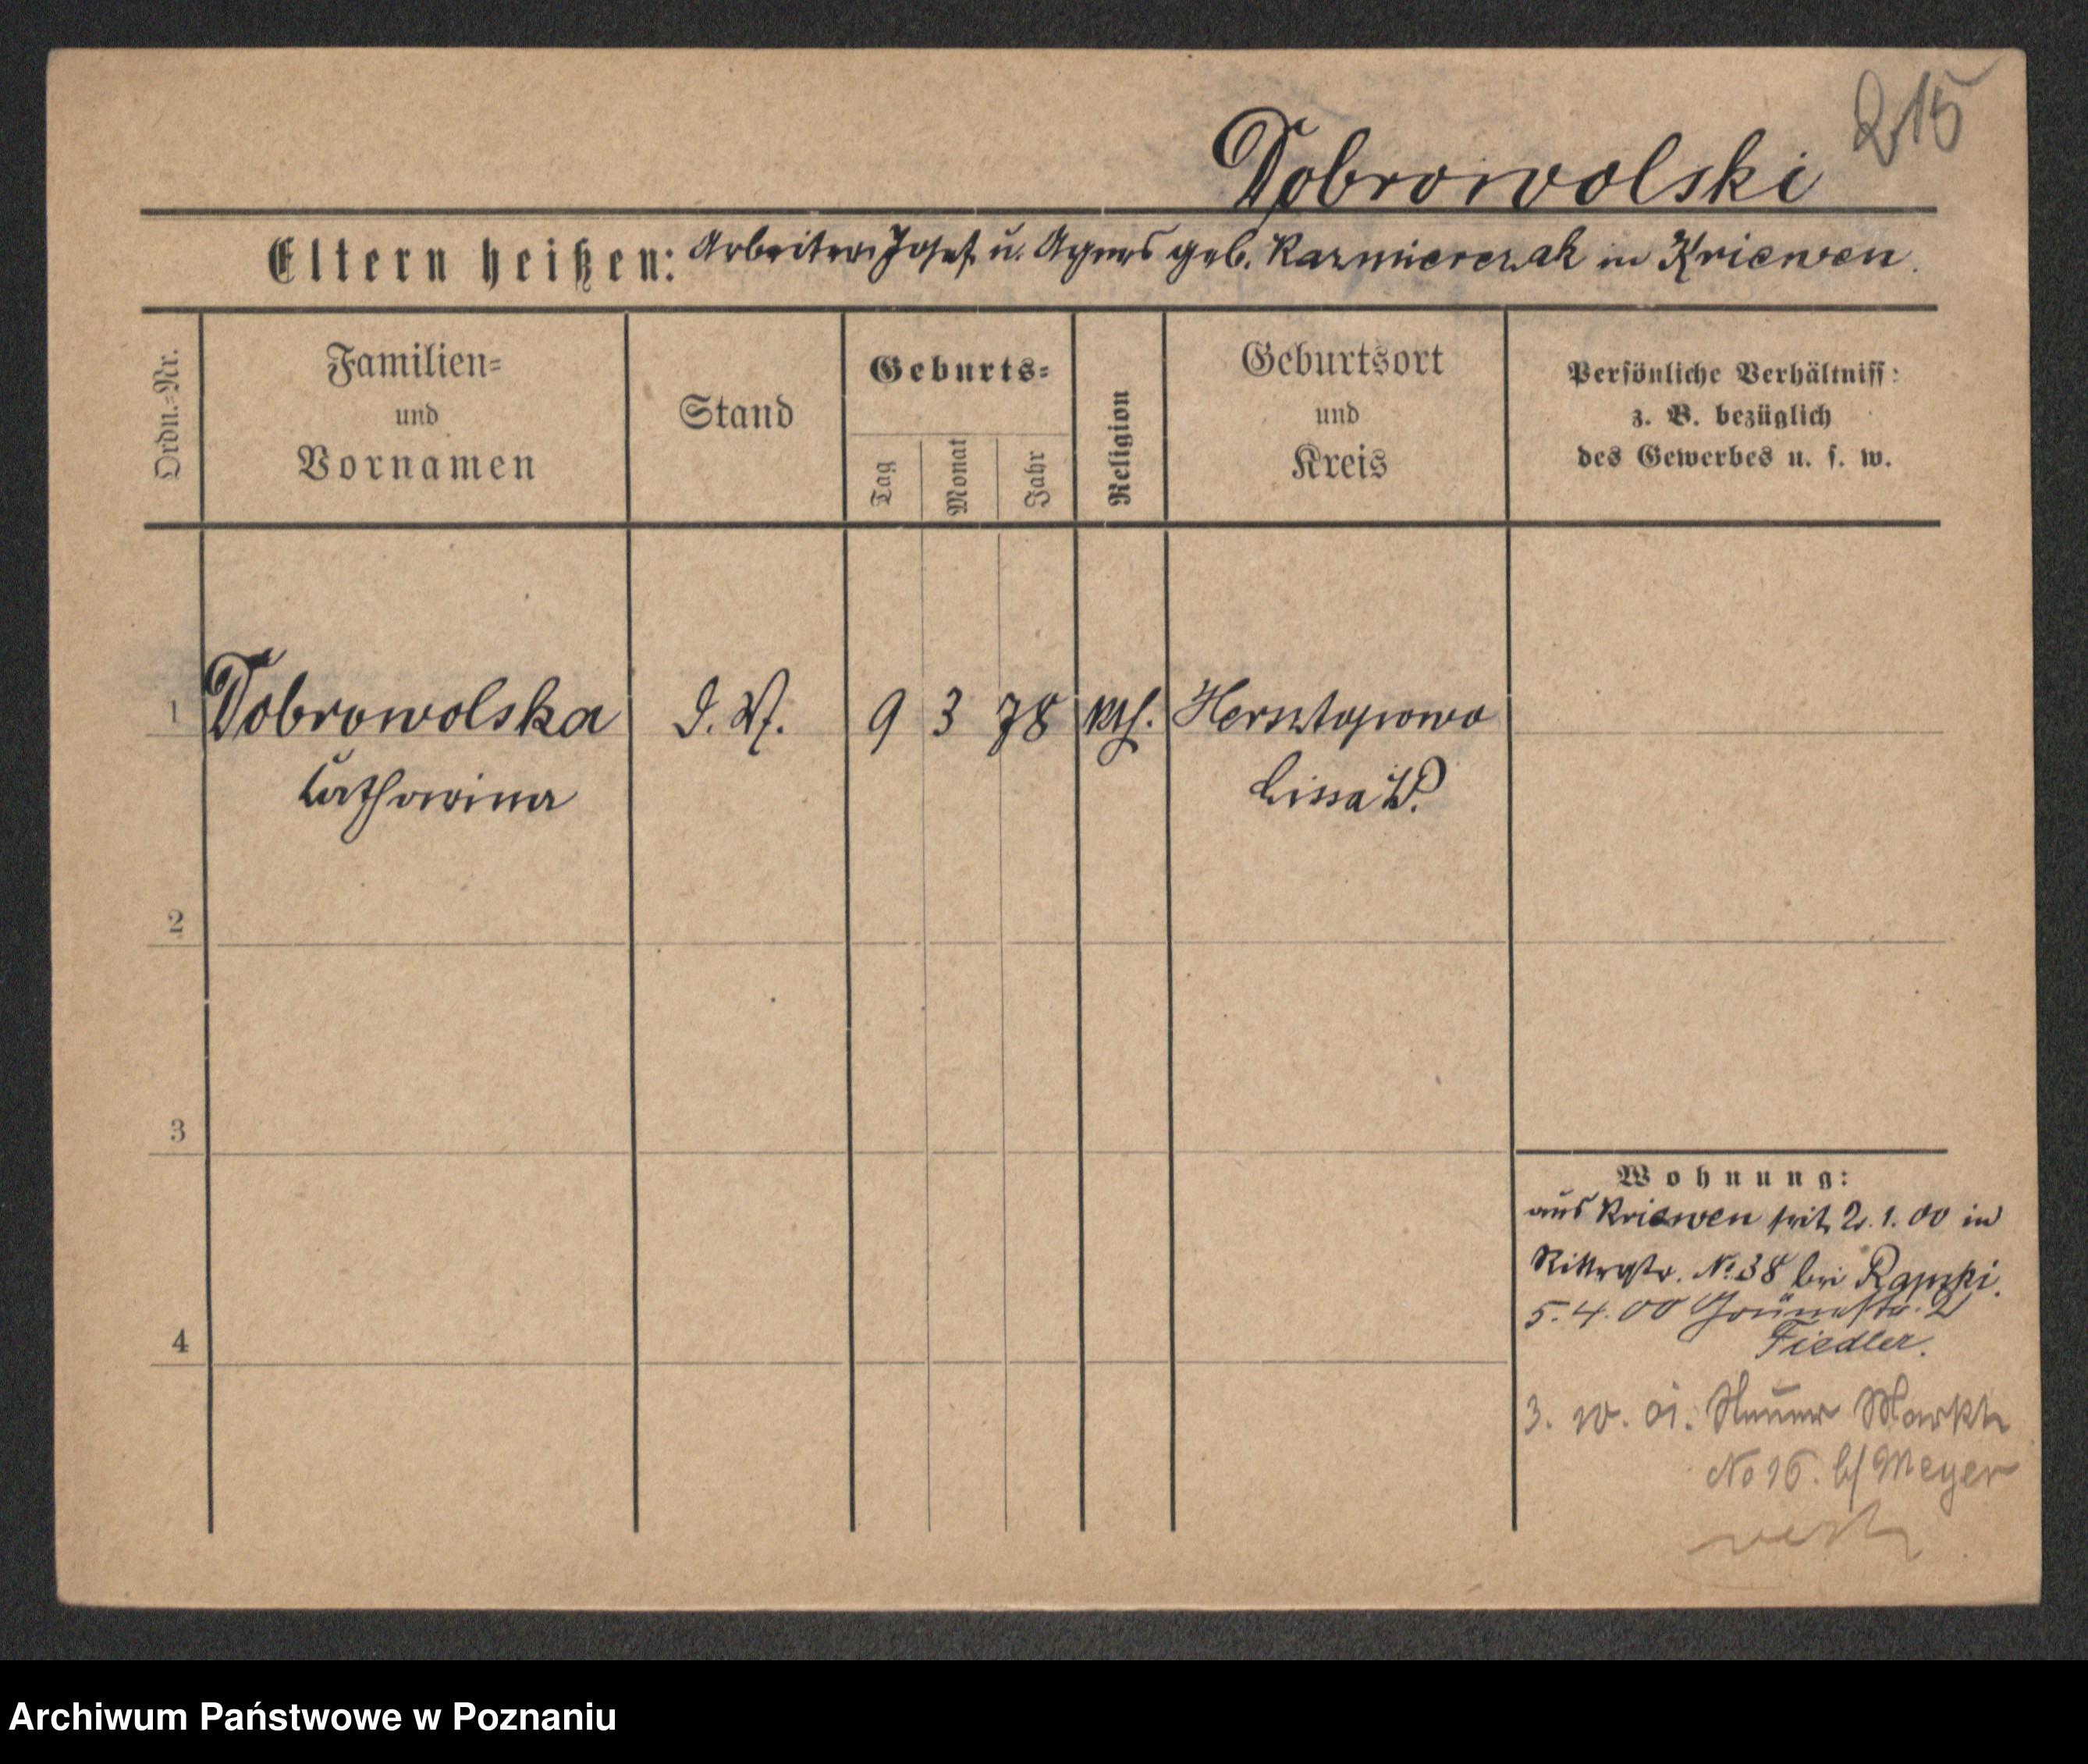 215
Dobrowolski
Eltern heißen: Arbeiter Josef u. Agnes geb. Kazmierczak in Kriewen.
Ordn.-Nr.
Familien-
und
Vornamen
Stand
Geburts-
Tag
Monat
Jahr
Religion
Geburtsort
und
Kreis
Persönliche Verhältniss:
z. B. bezüglich
des Gewerbes u. s. w.
1 Dobrowolska 9 3 78 kth. Hersztopowo
Catharina Lissa
2
3
4
Wohnung:
aus Kriewen seit 2.1.00 in
Ritterstr. No 38 bei
5.4.00 Grünestr. 2
Fiedler.
3. 10. 01. Neuer Markt
No 16. b/ Meyer
Archiwum Państwowe w Poznaniu